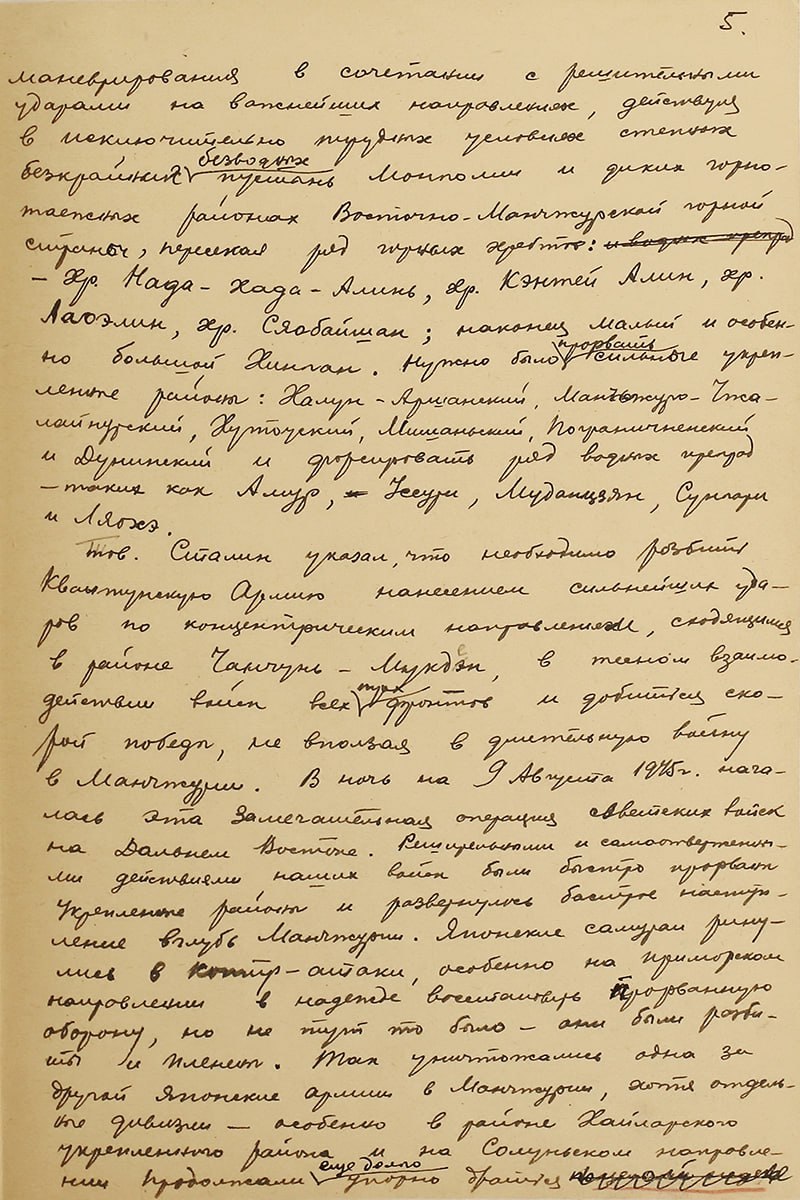 5.
маневрирования в сочетании с решительными
ударами на важнейших направлениях, действуя
в исключительно трудных условиях степных
безводных
безкрайних пустынь Монголии и диких горно-
таежных районах Восточно-Манчжурской горной
страны, пересекая ряд горных хребтов: и водных преград
– хр. Нада-хада-Алинь, хр. Кэнтей Алин, хр.
Лаоэлин, хр. Сяобайшан; наконец малый и особен-
прорвать
но большой Хинган. Нужно было сильные укреп-
ленные районы: Халун-Аршанский, Манчжуро-Чжа-
лайнурский, Хутоуский, Мишаньский, Пограничненский
и Дунинский и форсировать ряд водных преград
– таких как Амур, Уссури, Муданцзян, Сунгари
и Ляохэ.
Тов. Сталин указал, что необходимо разбить
Квантунскую Армию нанесением сильнейших уда-
ров по концентрическим направлениям, сходящимся
в районе Чанчунь – Мукден, в тесном взаимо-
трех
действии войск всех фронтов и добиться ско-
рой победы, не вползая в длительную войну
в Манчжурии. В ночь на 9 Августа 1945г. нача-
лась эта замечательная операция советских войск
на Дальнем Востоке. Решительными и самоотверженны-
ми действиями наших войск были быстро прорваны
укрепленные районы и развернулось быстрое наступ-
ление вглубь Манчжурии. Японские самураи рину-
лись в контр-атаки, особенно на приморском
направлении в надежде восстановить прорванную
оборону, но не тут то было – они были разби-
ты и пленены. Так уничтожались одна за
другой японские армии в Манчжурии, хотя отдель-
ные дивизии – особенно в районе Хайларского
укрепленного района и на Солуньском направле-
еще долго
нии продолжали упорно драться